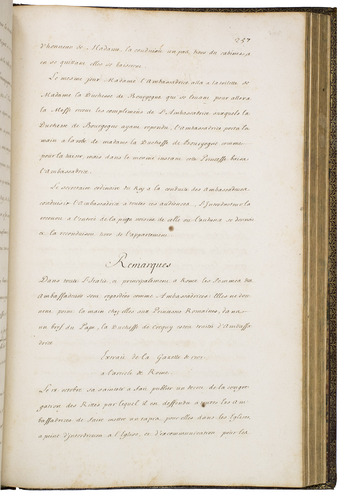 357
d'honneur de Madame, la conduisit un peu, hors du cabinet, &
en se quittant elles se baiserent.
Le mesme jour Madame l'Ambassadrice alla a la toilette de
Madame la Duchesse de Bourgogne, qui se levant pour aller a
la Messe receut les complimens de l'Ambassadrice ausquels la
Duchesse de Bourgogne ayant repondu, l'Ambassadrice porta la
main a la robe de madame la Duchesse de Bourgogne comme
pour la baiser, mais dans le mesme instant cette Princesse baisa
l'Ambassadrice.
Le Secretaire ordinaire du Roy a la conduite des Ambassadeurs
conduisit l'Ambassadrice a toutes ses audiences. l'Introducteur la
receut a l'entrée de la piece voisine de celle ou l'audience se donnoit
et la reconduisit hors de l'appartement.
Remarques
Dans toute l'Italie, & principalement a Rome les femmes des
Ambassadeurs sont regardées comme Ambassadrices: Elles ne donnent
point la main chez elles aux Princesses Romaines, dans
un bref du Pape, la Duchesse de Crequy est traitée d'Ambassadrice.
Extrait de la Gazette de
a l'article de Rome.
Le octobre sa sainteté a fait publier un decret de la congregation
des Rites par lequel il est deffendu a toutes les Ambassadrices
de faire mettre un tapis pour elles dans les Eglises
a peine d'interdiction a l'Eglise, et d'excommunication pour les